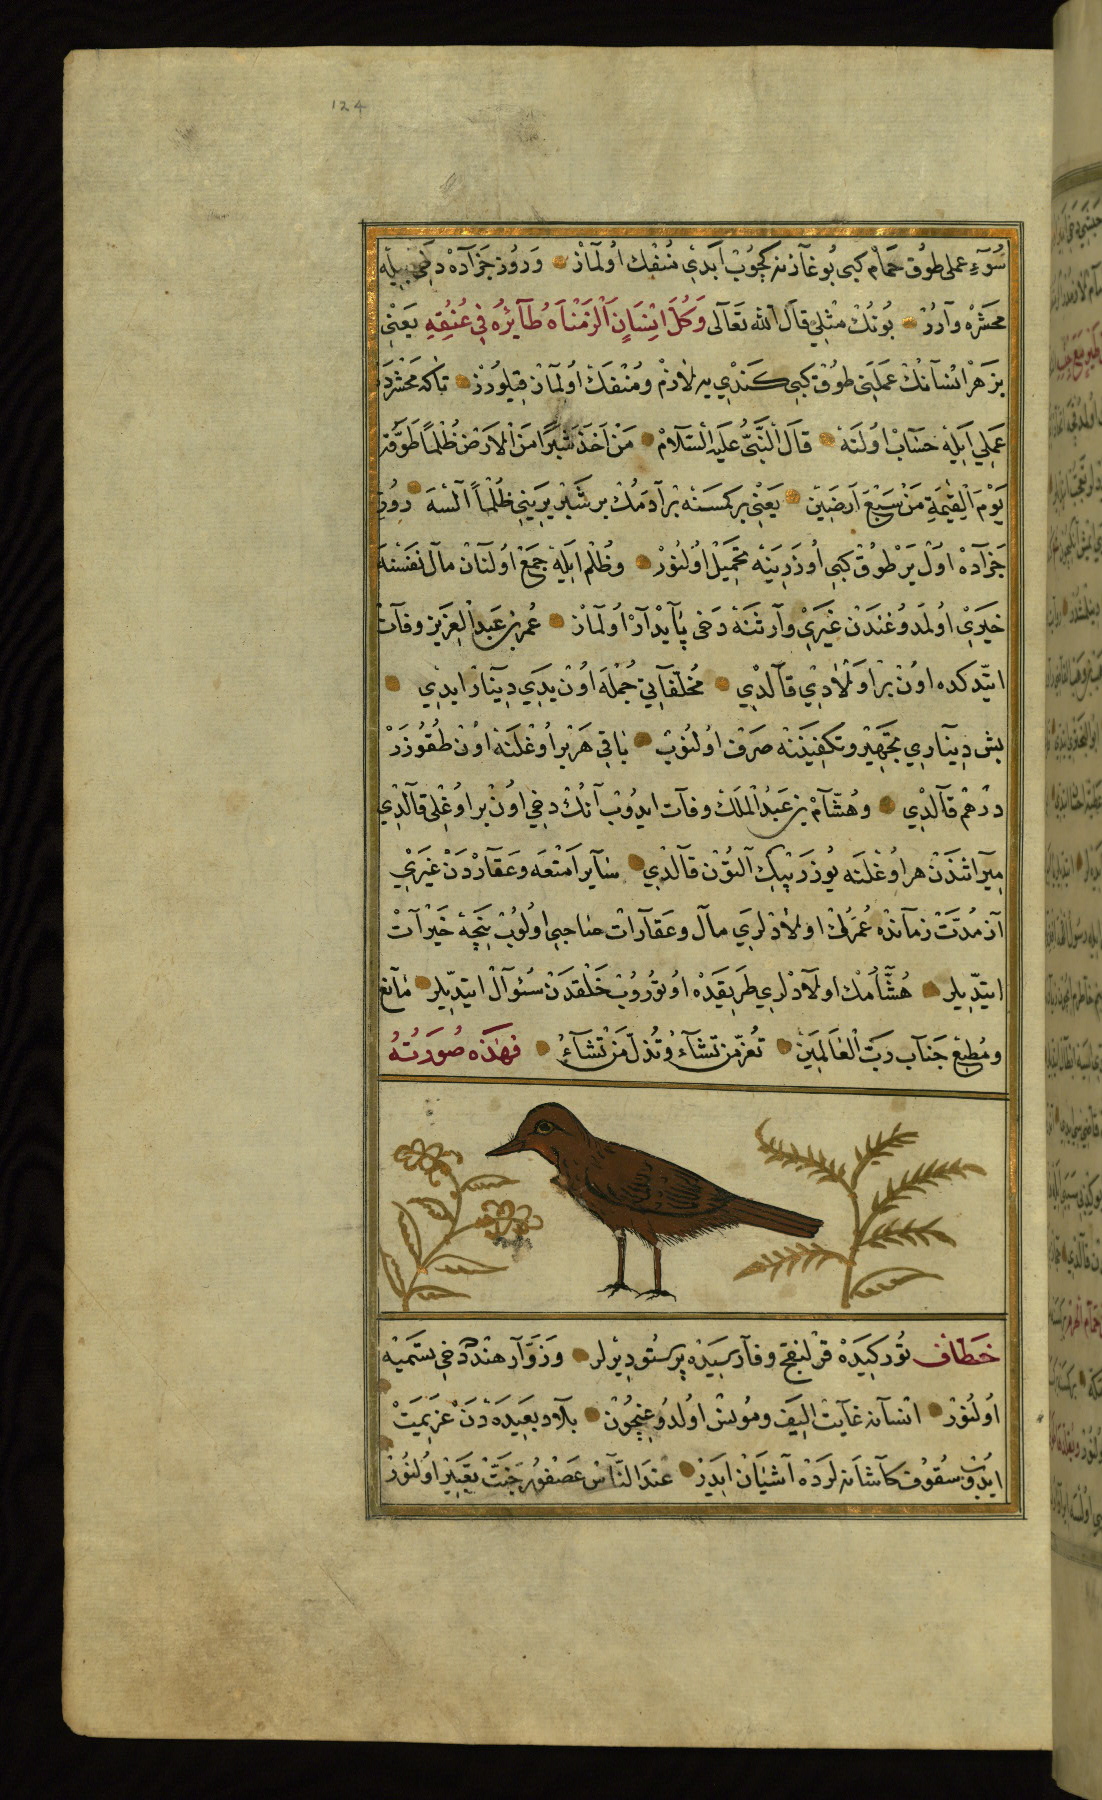 124
سُوءِ عملی طوق حمام کبی بوغازینه کچوب ابدی منفك اولماز وروز جزاده دخی بیله
محشره وارر بونك مثلی قال الله تعالی وَكُلَّ اِنْسَانٍ اَلْزَمْنَاهُ طَآئِرَهُ فِي عُنُقِهِ یعنی
بز هر انسانك عملنی طوق کبی کندییه لازم ومنفك اولماز قیلورز تاکه محشرده
عملی ایله حساب اولنه قال النبی علیه السلام من اخذ شبرا من الارض ظلما طوقه
یوم القیمة من سبع ارضین یعنی بر کمسنه بر آدمك بر شبر یرینی ظلما آلسه روز
جزاده اول یر طوق کبی اوزرینه تحمیل اولنور وظلم ایله جمع اولنان مال نفسنه
خیری اولمدوغندن غیری وارثنه دخی پایدار اولماز عمر بن عبد العزیز وفات
ایتدکده اون بر اولادی قالدی مخلفاتی جمله اون یدی دینار ایدی
بش دیناری تجهیز وتکفیننه صرف اولنوب باقی هر بر اوغلنه اون طقوزر
درهم قالدی وهشام بن عبد الملك وفات ایدوب آنك دخی اون بر اوغلی قالدی
میراثندن هر اوغلنه یوزر بیك آلتون قالدی سایر امتعه وعقاردن غیری
آز مدت زمانده عمرك اولادلری مال وعقارات صاحبی اولوب نیجه خیرات
ایتدیلر هشامك اولادلری طریقده اوتوروب خلقدن سئوال ایتدیلر مانع
ومطیع جناب رب العالمین تعز من تشاء وتذل من تشاء فهذه صورته
خطاف تورکیده قرلنغج وفارسیده پرستو دیرلر وزوار هند دخی تسمیه
اولنور انسانه غایت الیف ومونس اولدوغیچون بلاد بعیده دن عزیمت
ایدوب سقوف کاشانه لرده آشیان ایدر عند الناس عصفور جنت تعبیر اولنور